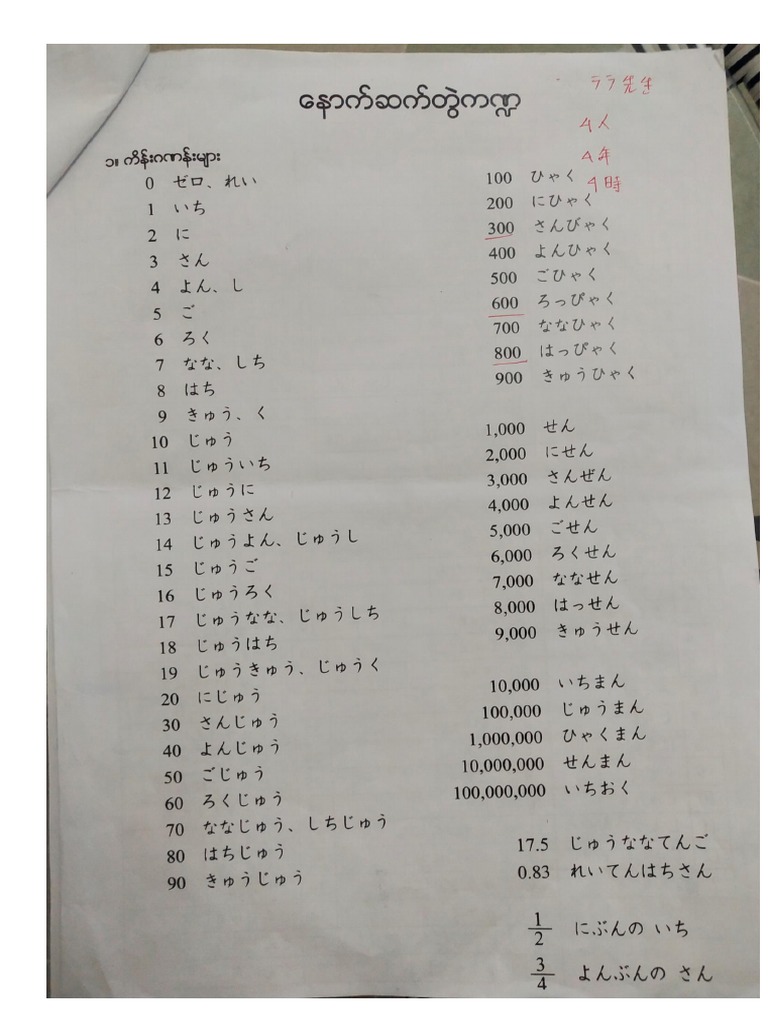 နောက်ဆက်တွဲကဏ္ဍ
ララ先生
4人
4年
4時
၁။ ကိန်းဂဏန်းများ
0 ゼロ、れい
1 いち
2 に
3 さん
4 よん、し
5 ご
6 ろく
7 なな、しち
8 はち
9 きゅう、く
10 じゅう
11 じゅういち
12 じゅうに
13 じゅうさん
14 じゅうよん、じゅうし
15 じゅうご
16 じゅうろく
17 じゅうなな、じゅうしち
18 じゅうはち
19 じゅうきゅう、じゅうく
20 にじゅう
30 さんじゅう
40 よんじゅう
50 ごじゅう
60 ろくじゅう
70 ななじゅう、しちじゅう
80 はちじゅう
90 きゅうじゅう
100 ひゃく
200 にひゃく
300 さんびゃく
400 よんひゃく
500 ごひゃく
600 ろっぴゃく
700 ななひゃく
800 はっぴゃく
900 きゅうひゃく
1,000 せん
2,000 にせん
3,000 さんぜん
4,000 よんせん
5,000 ごせん
6,000 ろくせん
7,000 ななせん
8,000 はっせん
9,000 きゅうせん
10,000 いちまん
100,000 じゅうまん
1,000,000 ひゃくまん
10,000,000 せんまん
100,000,000 いちおく
17.5 じゅうななてんご
0.83 れいてんはちさん
1/2 にぶんの いち
3/4 よんぶんの さん